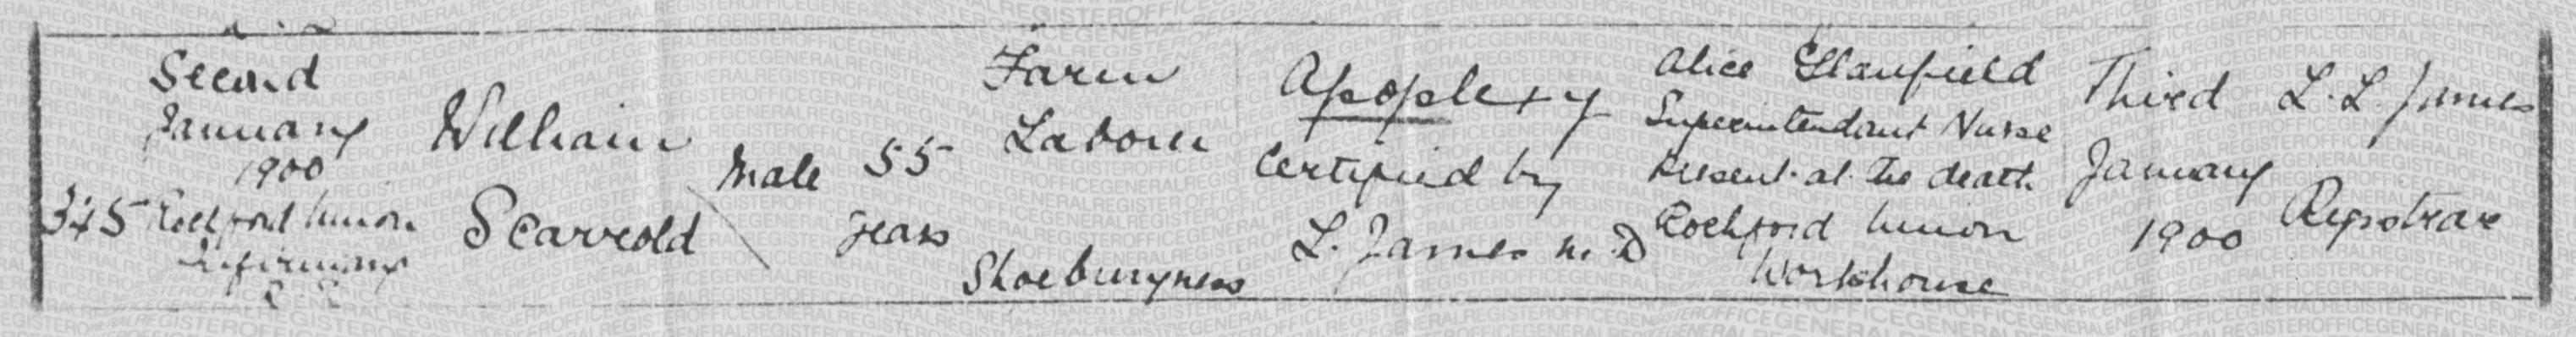 345
Second
January
1900
Rochford Union
Infirmary
R. D.
William
Scarrold
Male
55
years
Farm
Labourer
Shoeburyness
Apoplexy
Certified by
L. James M.D
Alice Stanfield
Superintendant Nurse
Present at the death
Rochford Union
Workhouse
Third
January
1900
L. L. James
Registrar